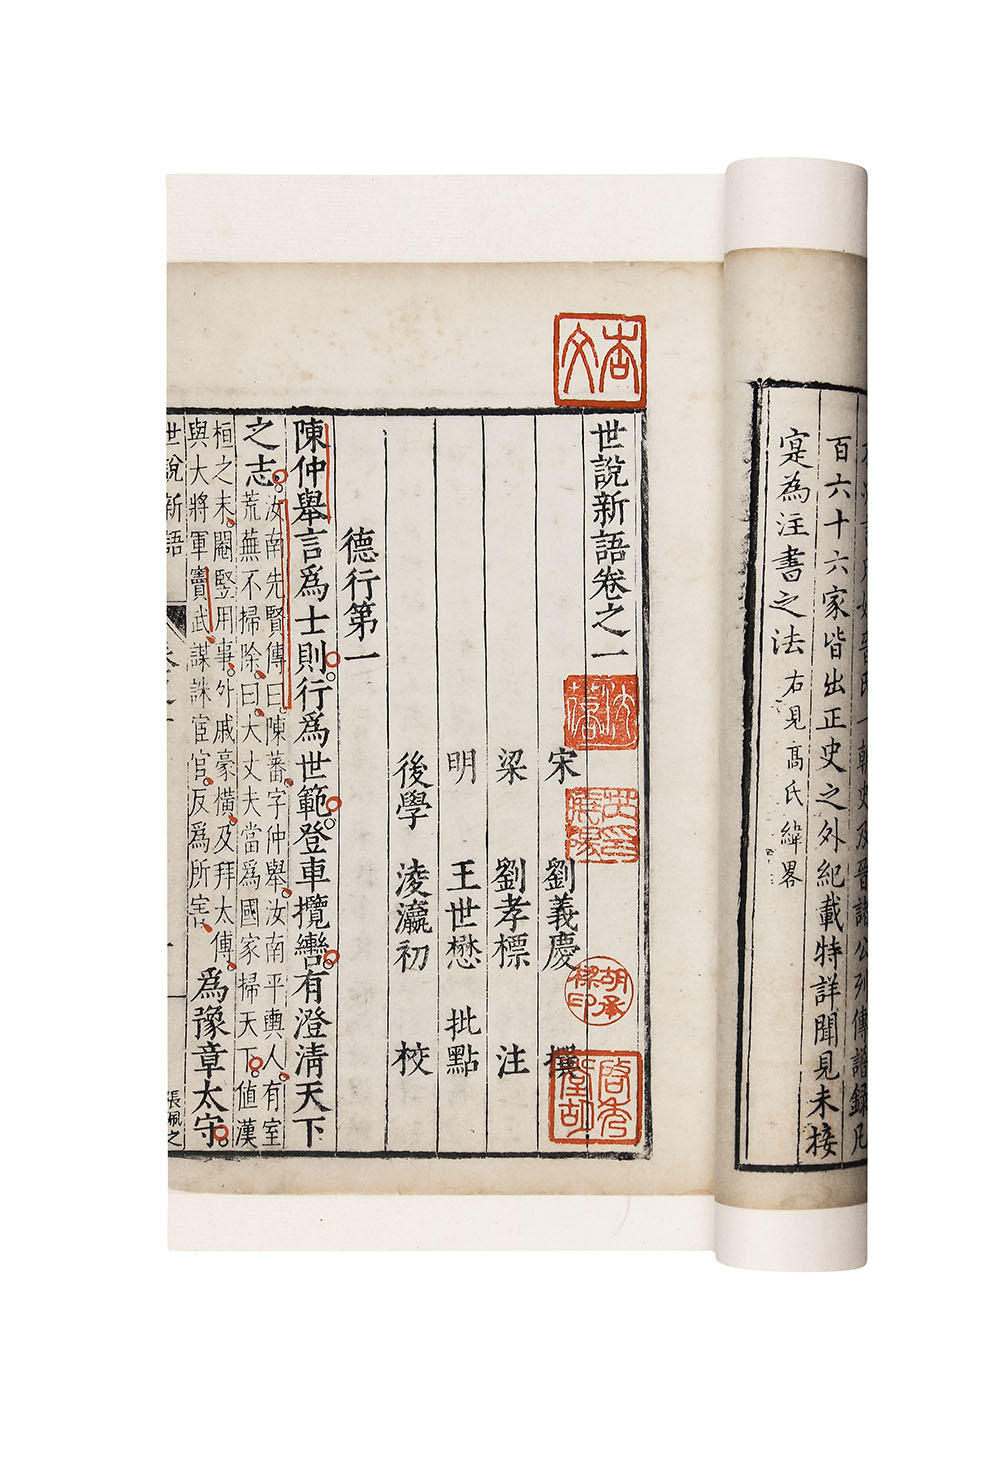 百六十六家皆出正史之外紀載特詳聞見未接
寔為注書之法右見高氏緯畧
世說新語卷之一
宋 劉義慶 撰
梁 劉孝標 注
明 王世懋 批點
後學 淩瀛初 校
德行第一
陳仲舉言爲士則行爲世範登車攬轡有澄清天下
之志汝南先賢傳曰陳蕃字仲舉汝南平輿人有室
荒蕪不掃除曰大丈夫當爲國家掃天下值漢
桓之末閹豎用事外戚豪橫及拜太傅
與大將軍竇武謀誅宦官反爲所害爲豫章太守
世說新語
張佩之
胡承樑印